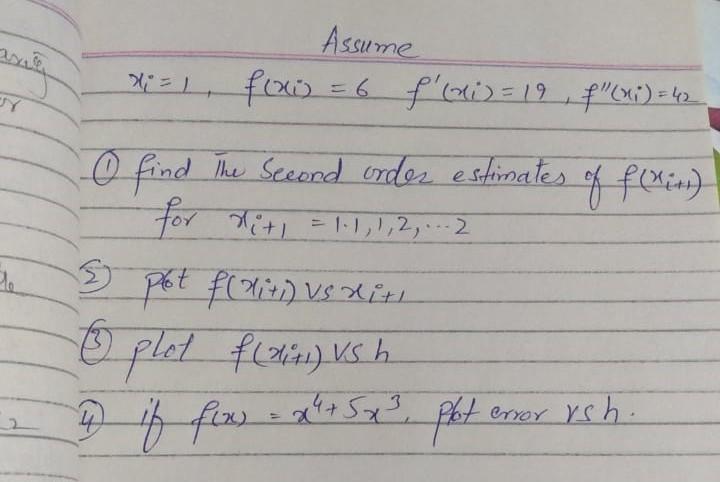 Assume
xi = 1, f(xi) = 6 f'(xi) = 19, f''(xi) = 42
① find The Second order estimates of f(xi+1)
for xi+1 = 1.1, 1,2, ... 2
② plot f(xi+1) vs xi+1
③ plot f(xi+1) vs h
④ if f(x) = x⁴ + 5x³, plot error vs h.